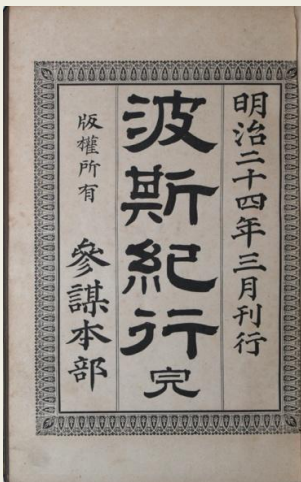 明治二十四年三月刊行
波斯紀行 完
版權所有 參謀本部